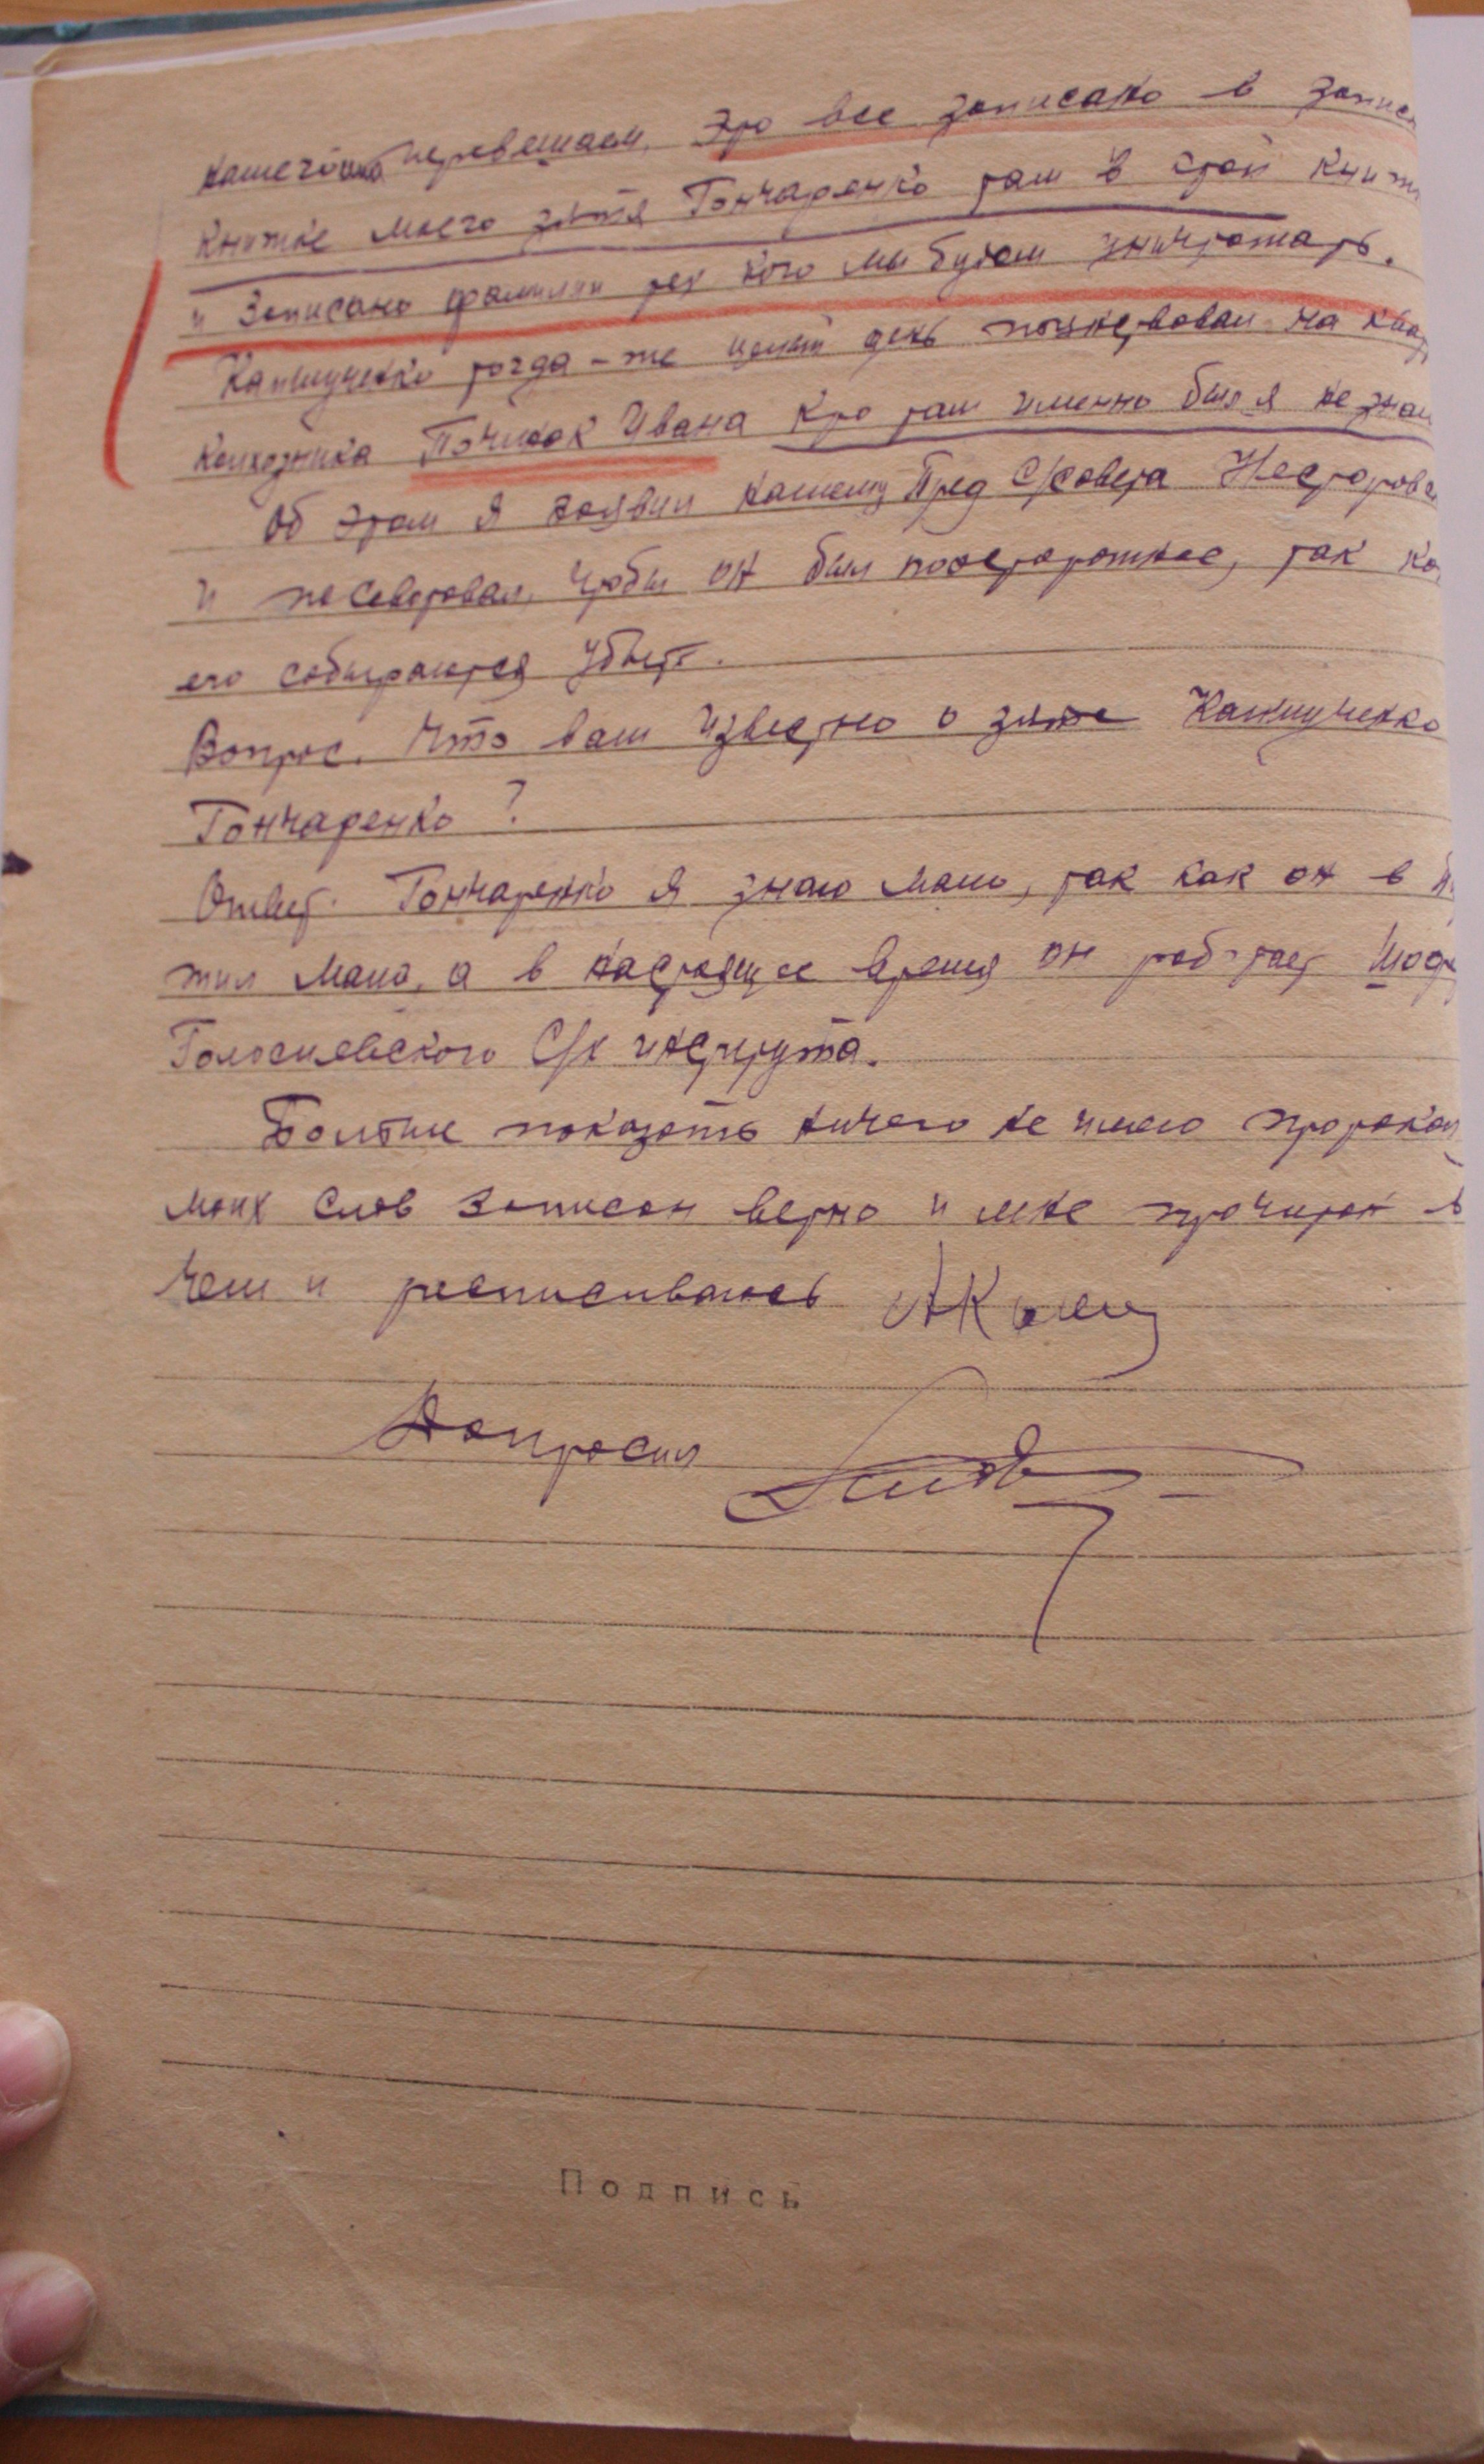 перевешаем, Это все записано в запис
книжке моего зятя Гончаренко там в этой книж
и записано фамилии тех кого мы будем уничтожать.
тогда-же целый день на квар
колхозника Починок Ивана кто там именно был я не знаю
Об этом я заявил нашему Пред С/совета Нестерове
и посоветовал, чтобы он был поосторожнее, так ка
его собираются убить.
Вопрос. Что вам известно о зяте
Гончаренко?
Ответ. Гончаренко я знаю мало, так как он в
жил мало, а в настоящее время он работает Шоф
Голосиевского С/х института.
Больше показать ничего не имею протокол
моих слов записан верно и мне прочитан в
чем и расписываюсь
Допросил
Подпись